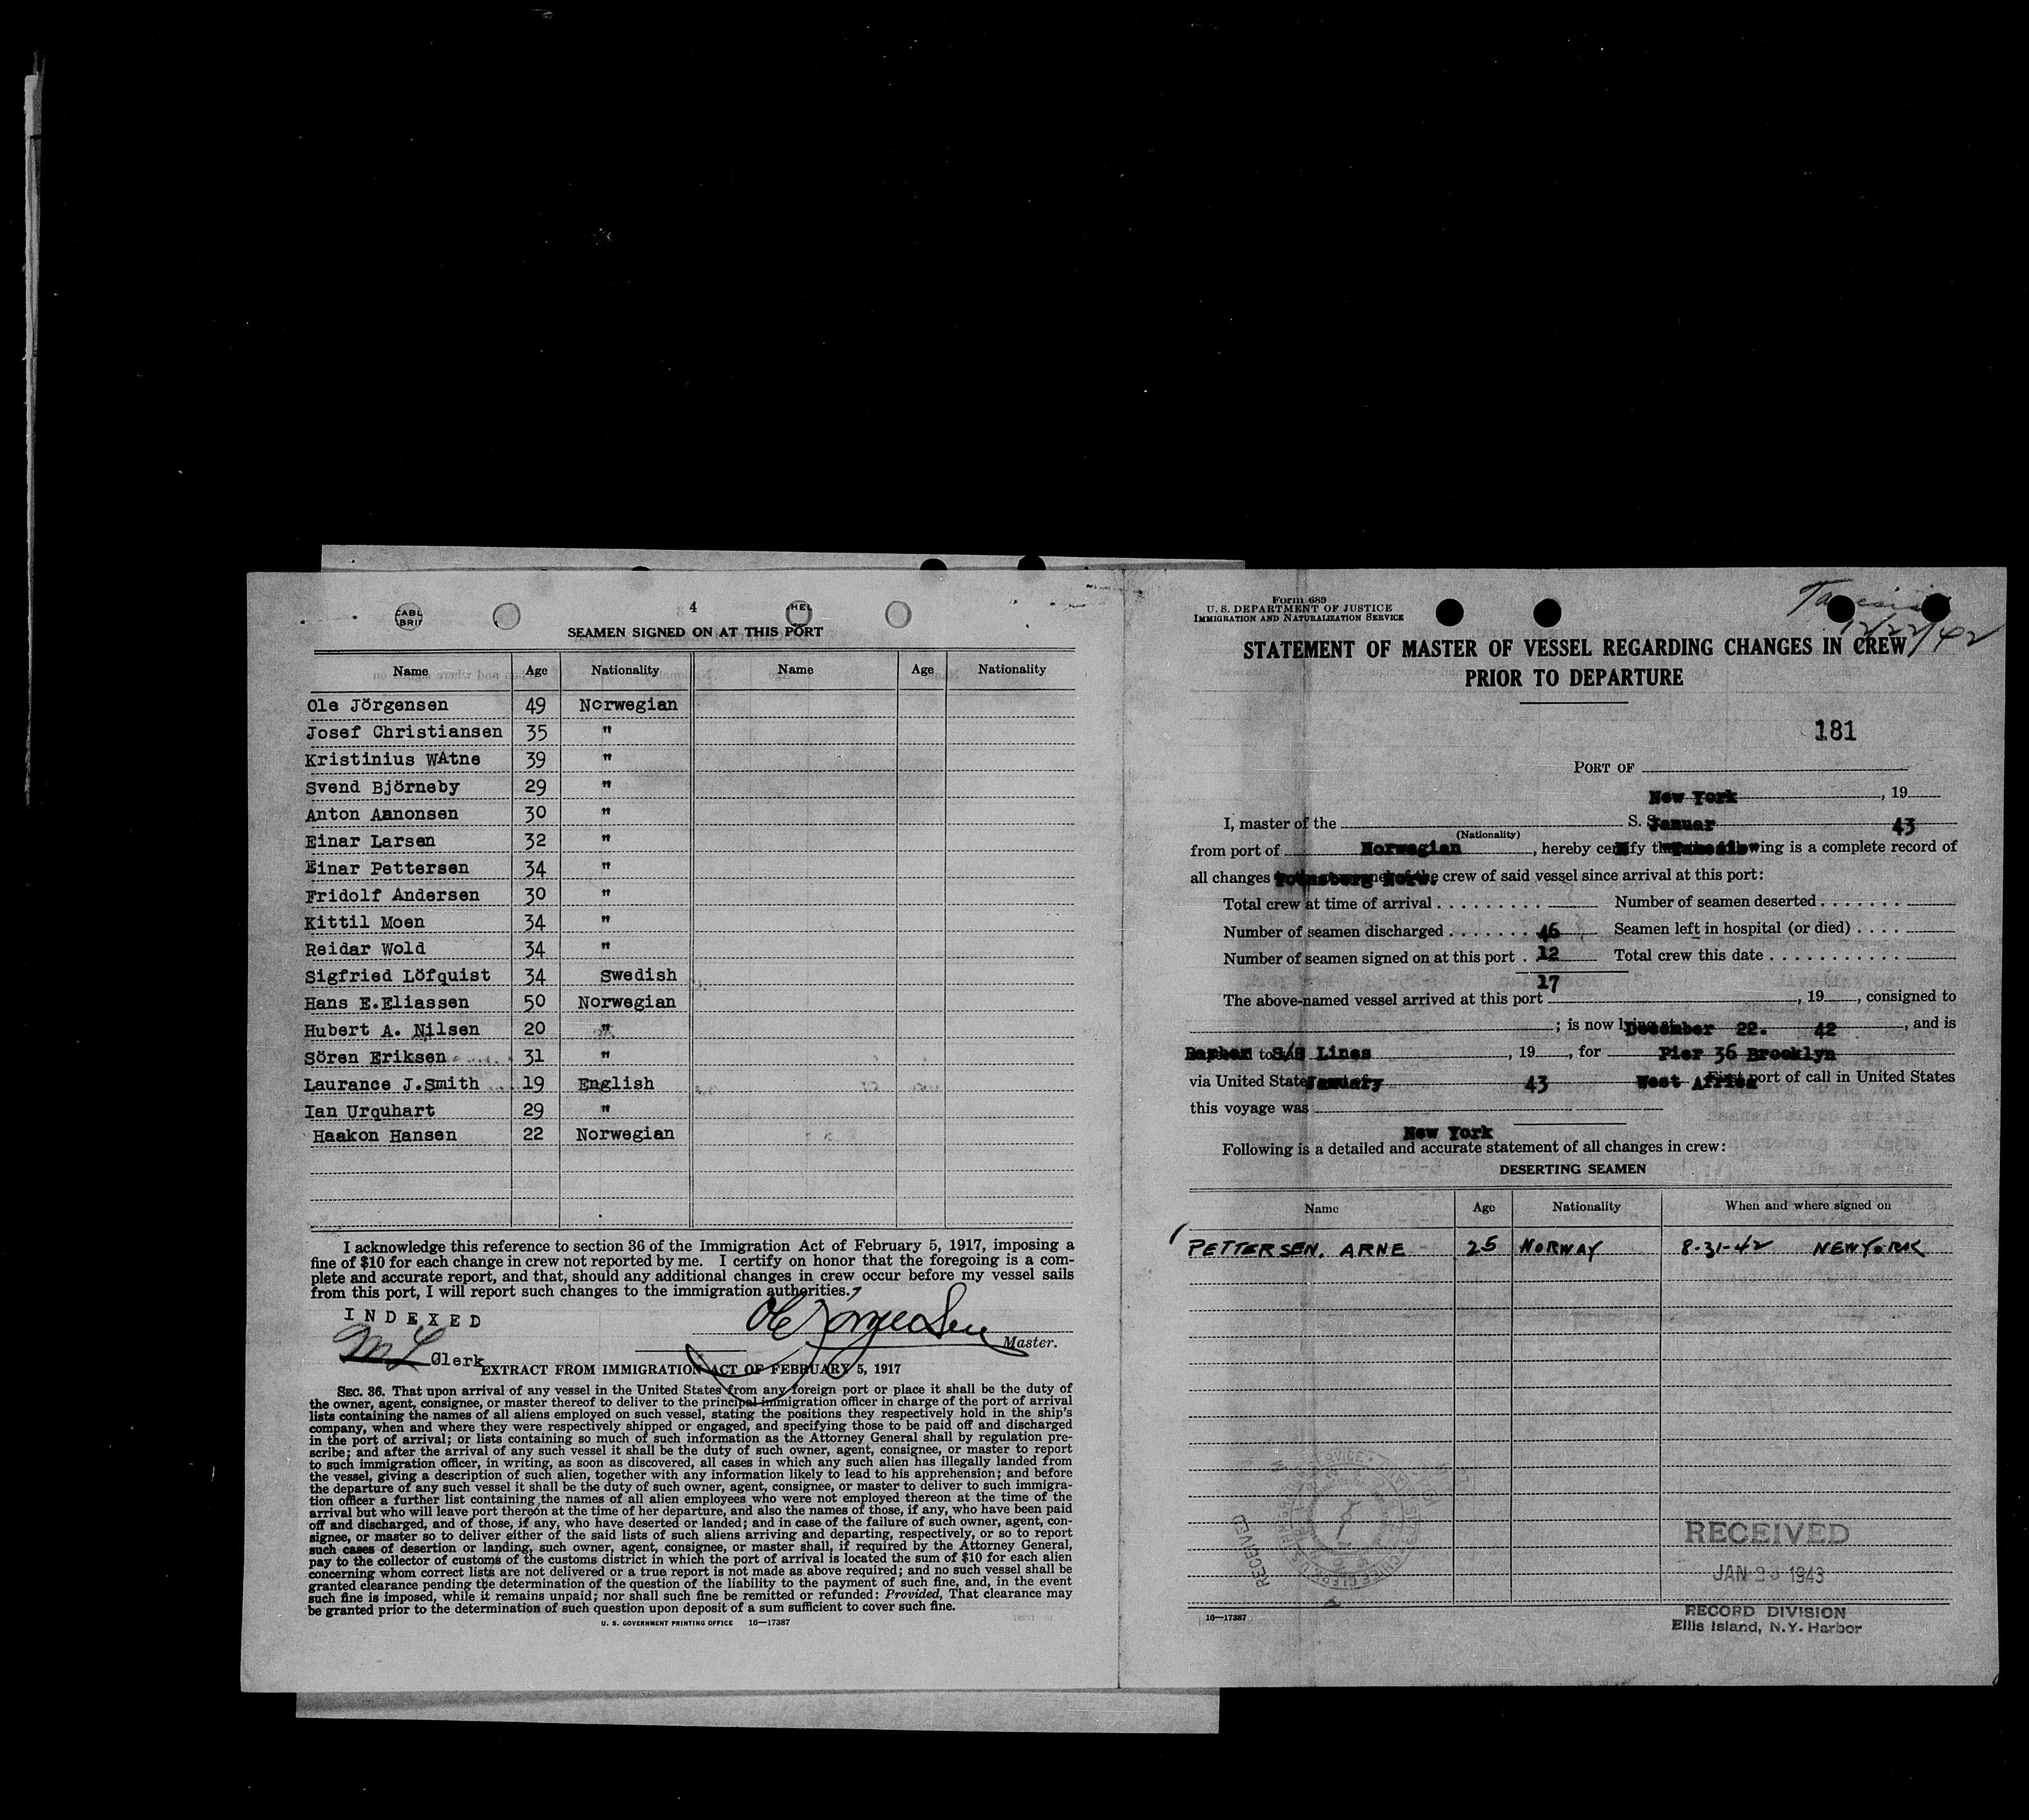 CABL
BRIT
HEL
4
SEAMEN SIGNED ON AT THIS PORT
Name Age Nationality Name Age Nationality
Ole Jörgensen 49 Norwegian
Josef Christiansen 35 "
Kristinius WAtne 39 "
Svend Björneby 29 "
Anton Aanonsen 30 "
Einar Larsen 32 "
Einar Pettersen 34 "
Fridolf Andersen 30 "
Kittil Moen 34 "
Reidar Wold 34 "
Sigfried Löfquist 34 Swedish
Hans E.Eliassen 50 Norwegian
Hubert A. Nilsen 20 "
Sören Eriksen 31 "
Laurance J.Smith 19 English
Ian Urquhart 29 "
Haakon Hansen 22 Norwegian
I acknowledge this reference to section 36 of the Immigration Act of February 5, 1917, imposing a
fine of $10 for each change in crew not reported by me. I certify on honor that the foregoing is a com-
plete and accurate report, and that, should any additional changes in crew occur before my vessel sails
from this port, I will report such changes to the immigration authorities.
INDEXED
Master.
ML Clerk
EXTRACT FROM IMMIGRATION ACT OF FEBRUARY 5, 1917
SEC. 36. That upon arrival of any vessel in the United States from any foreign port or place it shall be the duty of
the owner, agent, consignee, or master thereof to deliver to the principal immigration officer in charge of the port of arrival
lists containing the names of all aliens employed on such vessel, stating the positions they respectively hold in the ship's
company, when and where they were respectively shipped or engaged, and specifying those to be paid off and discharged
in the port of arrival; or lists containing so much of such information as the Attorney General shall by regulation pre-
scribe; and after the arrival of any such vessel it shall be the duty of such owner, agent, consignee, or master to report
to such immigration officer, in writing, as soon as discovered, all cases in which any such alien has illegally landed from
the vessel, giving a description of such alien, together with any information likely to lead to his apprehension; and before
the departure of any such vessel it shall be the duty of such owner, agent, consignee, or master to deliver to such immigra-
tion officer a further list containing the names of all alien employees who were not employed thereon at the time of the
arrival but who will leave port thereon at the time of her departure, and also the names of those, if any, who have been paid
off and discharged, and of those, if any, who have deserted or landed; and in case of the failure of such owner, agent, con-
signee, or master so to deliver either of the said lists of such aliens arriving and departing, respectively, or so to report
such cases of desertion or landing, such owner, agent, consignee, or master shall, if required by the Attorney General,
pay to the collector of customs of the customs district in which the port of arrival is located the sum of $10 for each alien
concerning whom correct lists are not delivered or a true report is not made as above required; and no such vessel shall be
granted clearance pending the determination of the question of the liability to the payment of such fine, and, in the event
such fine is imposed, while it remains unpaid; nor shall such fine be remitted or refunded: Provided, That clearance may
be granted prior to the determination of such question upon deposit of a sum sufficient to cover such fine.
U. S. GOVERNMENT PRINTING OFFICE 16—17387
Form 689
U. S. DEPARTMENT OF JUSTICE
IMMIGRATION AND NATURALIZATION SERVICE
12/22/42
STATEMENT OF MASTER OF VESSEL REGARDING CHANGES IN CREW
PRIOR TO DEPARTURE
181
PORT OF
New York , 19
I, master of the S. S. Januar 43
(Nationality)
from port of Norwegian , hereby certify that the following is a complete record of
all changes Toensberg Norw. the crew of said vessel since arrival at this port:
Total crew at time of arrival Number of seamen deserted
Number of seamen discharged 46 Seamen left in hospital (or died)
Number of seamen signed on at this port 12 Total crew this date
17
The above-named vessel arrived at this port , 19 , consigned to
; is now lying at December 22. 42 , and is
Barber S/S Lines , 19 , for Pier 36 Brooklyn
via United States January 43 West Africa First port of call in United States
this voyage was
New York
Following is a detailed and accurate statement of all changes in crew:
DESERTING SEAMEN
Name Age Nationality When and where signed on
PETTERSEN, ARNE 25 NORWAY 8-31-42 NEW YORK
RECEIVED
RECEIVED
JAN 23 1943
RECORD DIVISION
Ellis Island, N.Y. Harbor
16—17387